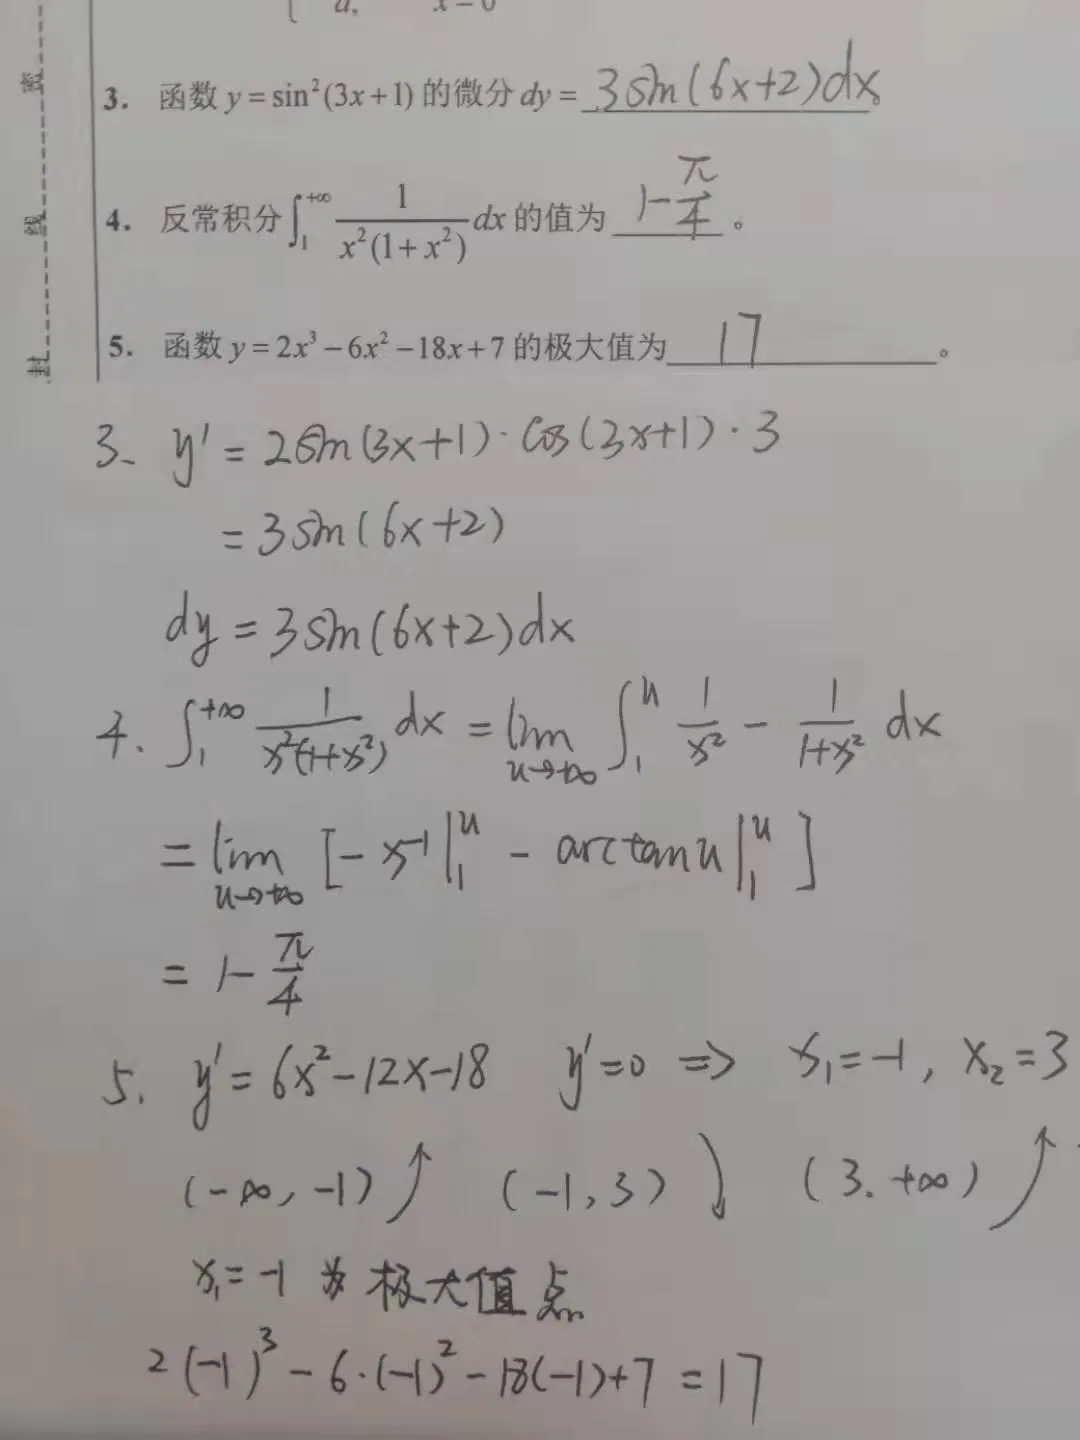 a, x = 0
3. 函数 y = sin²(3x+1) 的微分 dy = 3sin(6x+2)dx。
4. 反常积分 ∫₁^{+∞} 1/(x²(1+x²)) dx 的值为 1-π/4 。
5. 函数 y = 2x³ - 6x² - 18x + 7 的极大值为 17 。
3、 y' = 2sin(3x+1)·cos(3x+1)·3
= 3sin(6x+2)
dy = 3sin(6x+2)dx
4、 ∫₁^{+∞} 1/(x²(1+x²)) dx = lim_{u→+∞} ∫₁^u 1/x² - 1/(1+x²) dx
= lim_{u→+∞} [-x⁻¹|₁^u - arctanu|₁^u]
= 1-π/4
5、 y' = 6x²-12x-18 y'=0 => x₁=-1, x₂=3
(-∞, -1) ↗ (-1, 3) ↘ (3. +∞) ↗
x₁=-1 为 极大值点
2(-1)³ - 6·(-1)² - 18(-1)+7 = 17
密
线
封